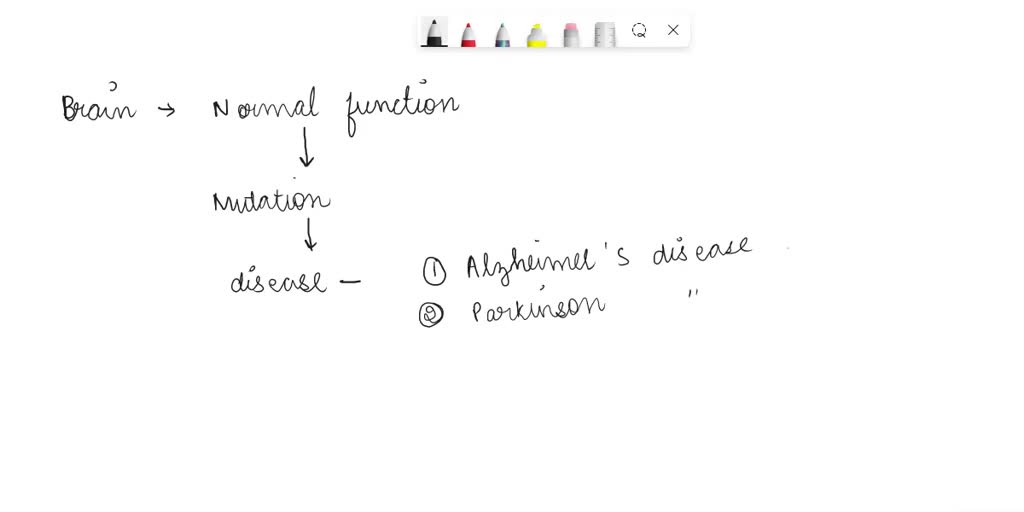 Brain → Normal function
↓
Mutation
↓
disease – ① Alzheimer's disease
② Parkinson "